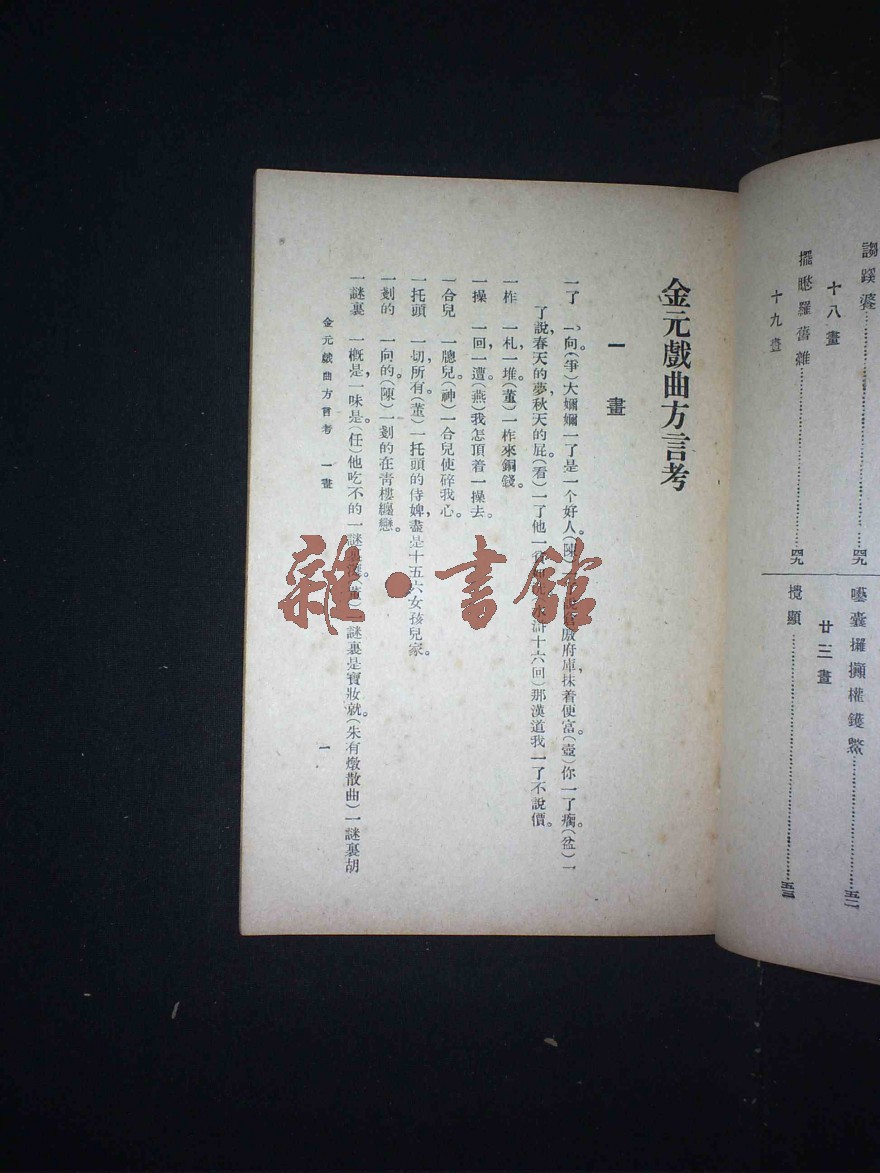 謅蹊婆………………四九
十八畫
擺㦬羅舊雜………………四九
十九畫
囈囊攞攧權鑊鰲………………五二
廿三畫
攪顯………………五三
金元戲曲方言考
一畫
一了　一向。(爭)大嬭嬭一了是一个好人。(陳)府庫抹着便富(壺)你一了癘。(盆)一
了說春天的夢,秋天的屁。(看)一了他一水滸十六回)那漢道我一了不說價。
一柞　一札,一堆(董)一柞來銅錢。
一操　一回,一遭(燕)我怎頂着一操去。
一合兒　一䏈兒(神)一合兒使碎我心。
一托頭　一切,所有(董)一托頭的侍婢,盡是十五六女孩兒家。
一剗的　一向的(陳)一剗的在青樓纏戀。
一謎裏　一槪是,一味是(任)他吃不的一謎裏是寶妝就。(朱有燉散曲)一謎裏胡
金元戲曲方言考　一畫　一
雜·書館